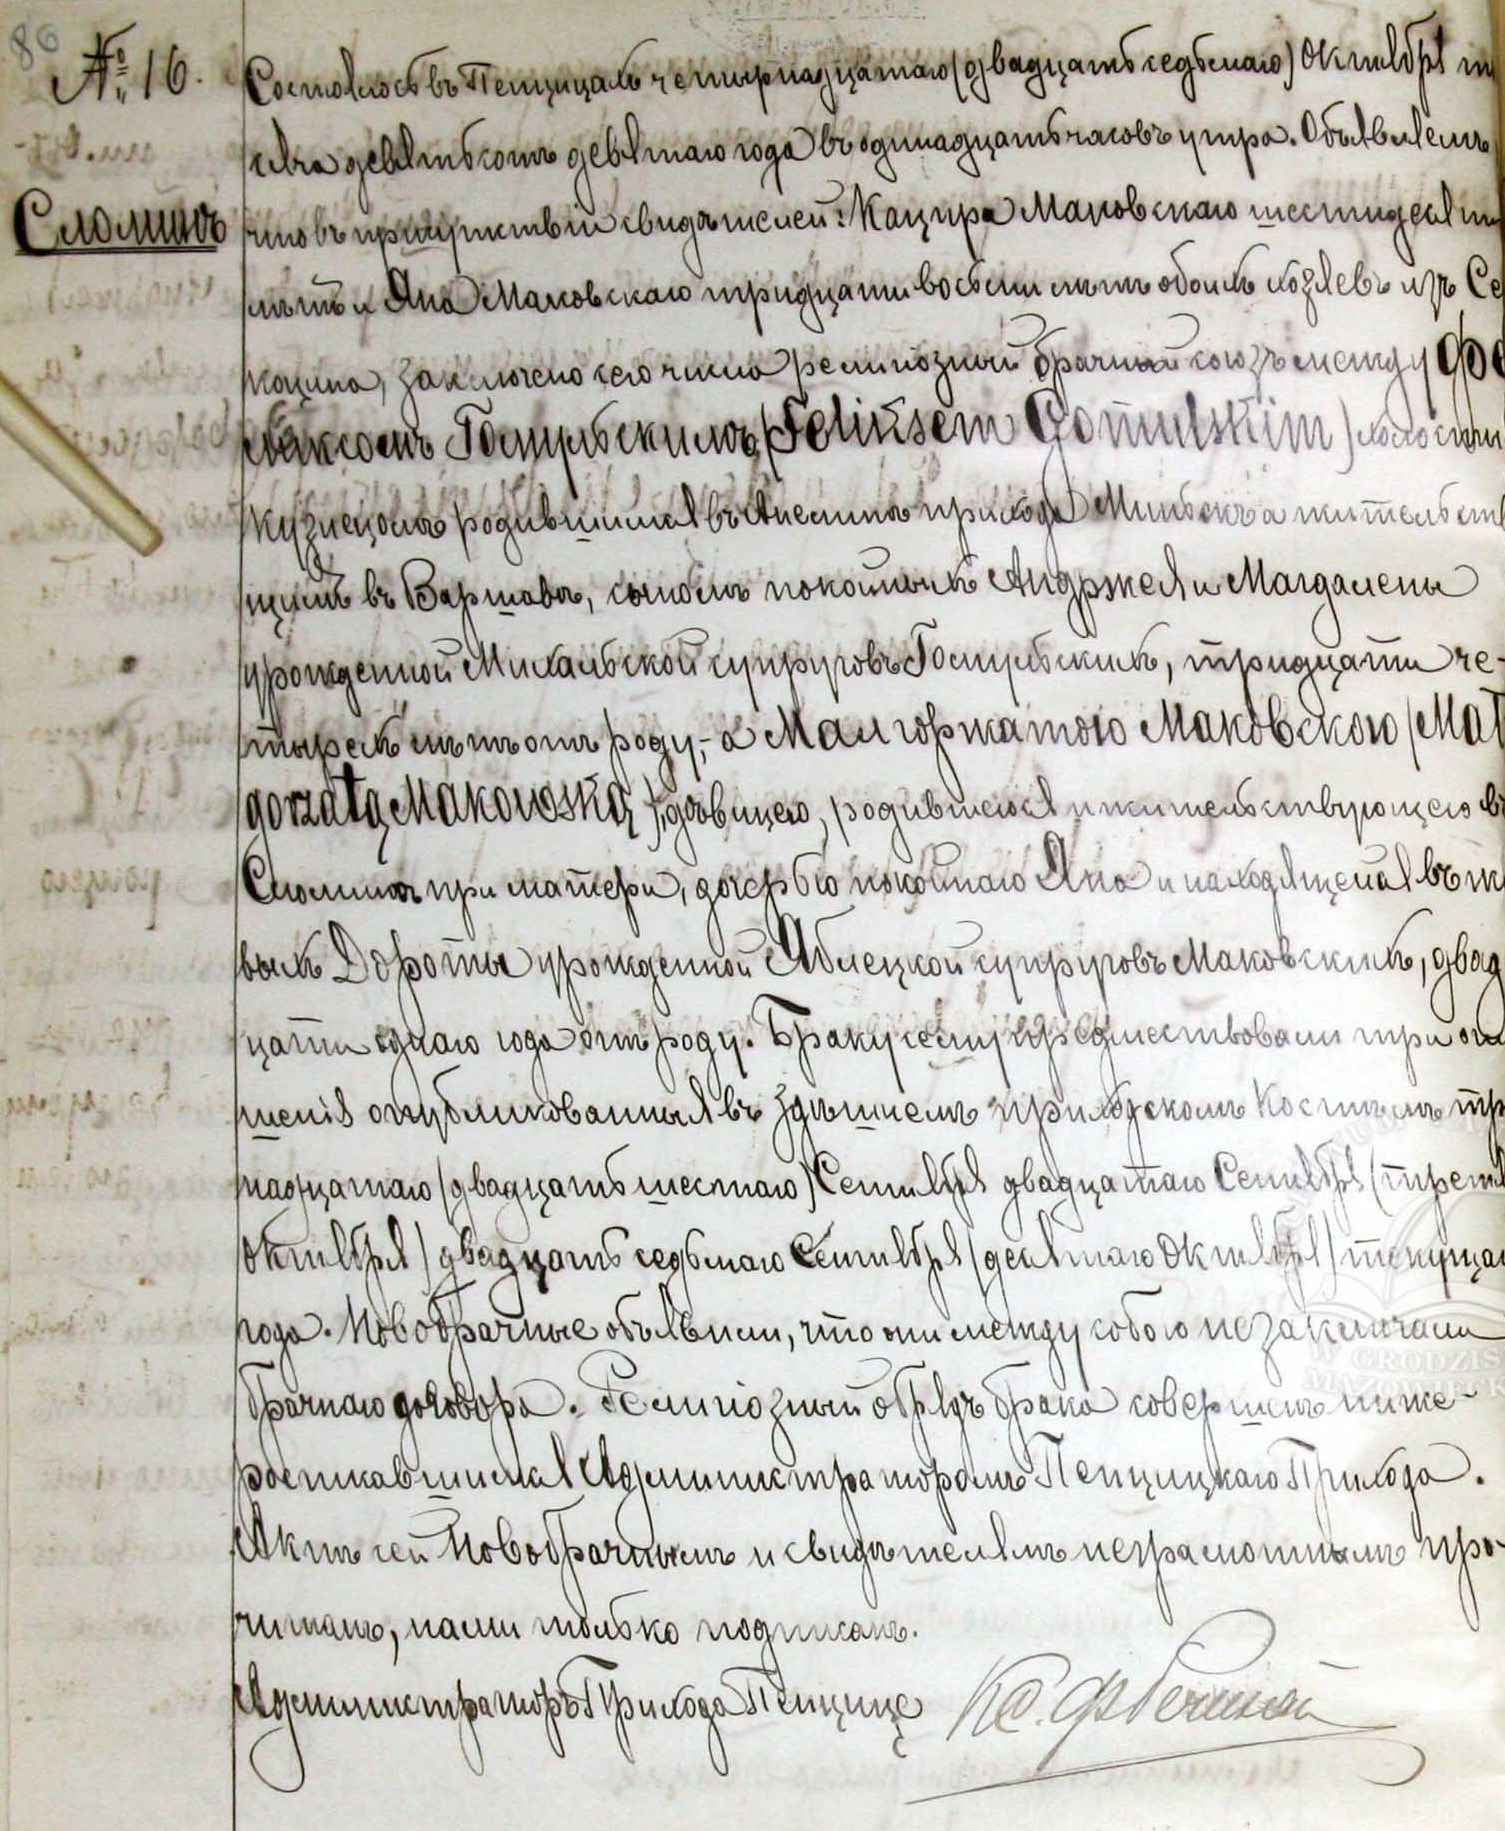 86
№ 16.
Сломинъ
Состоялось въ Пенцицахъ четырнадцатаго (двадцать седьмаго) Октября ты
сяча девятьсотъ девятаго года въ одинадцать часовъ утра. Объявляемъ
что въ присутствіи свидѣтелей: Кацпра Маковскаго шестидесяти
лѣтъ и Яна Маковскаго тридцати восьми лѣтъ обоихъ хозяевъ изъ Се
коцина, заключено сего числа религіозный брачный союзъ между Фе
ликсомъ Гомульскимъ (Feliksem Gomulskim) холосты
кузнецомъ родившимся въ Анелинѣ прихода Минскъ а жительств
щимъ въ Варшавѣ, сыномъ покойныхъ Анджея и Магдалены
урожденной Михальской супруговъ Гомульскихъ, тридцати че-
тырехъ лѣтъ отъ роду, а Малгоржатою Маковскою (Mał
gorzatą Makowską), дѣвицею, родившеюся и жительствующею въ
Сломинѣ при матери, дочерью покойнаго Яна и находящейся въ жи
выхъ Дороты урожденной Яблецкой супруговъ Маковскихъ, двад
цати однаго года отъ роду. Браку сему предшествовали три огл
шенія опубликованныя въ здѣшнемъ приходскомъ Костелѣ тр
надцатаго (двадцать шестаго) Сентября двадцатаго Сентября (третья
Октября) двадцать седьмаго Сентября (десятаго Октября) текущаг
года. Новобрачные объявили, что они между собою не заключали
брачнаго договора. Религіозный обрядъ брака совершенъ ниже-
росписавшимся Администраторомъ Пенцицкаго Прихода.
Актъ сей Новобрачнымъ и свидѣтелямъ неграмотнымъ про-
читанъ, нами только подписанъ.
Администраторъ Прихода Пенцице Кс.
W GRODZIS
MAZOWIECK